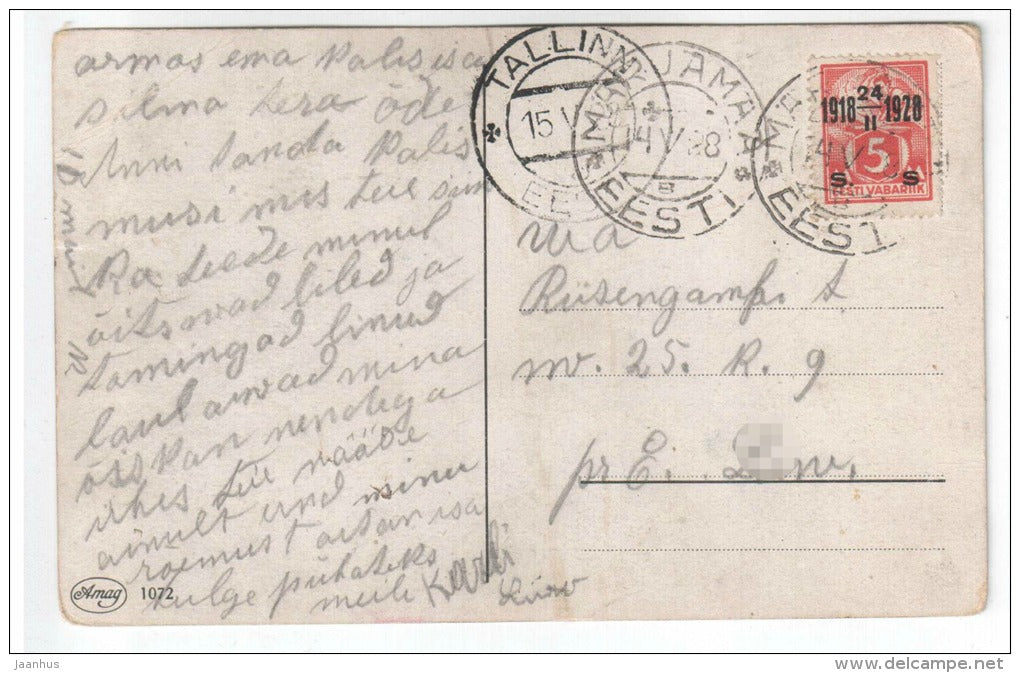 armas ema kalis isa
silma tera õde
Anni tanda kalis
musi mis teie siin
ka teede minul
õitswad liled ja
tamingad linud
laulawad mina
õiskan nendega
ühes teie nääde
ainult und minu
rõemust aitan isa
tulge pühateks
meile Karli
TALLINN
15 V
EE
MAARJAMAA
4 V 28
B
EESTI
EESTI
1918 24 II 1928
5
S. S
EESTI VABARIIK
Rüsengamp. t
nr. 25. K. 9
pr E.
Amag 1072
jaanhus
www.delcampe.net